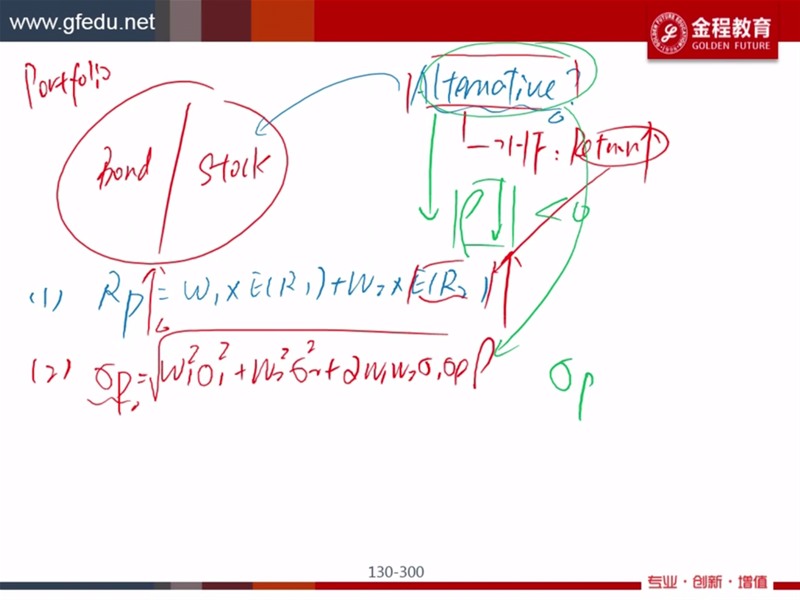 www.gfedu.net
金程教育
GOLDEN FUTURE
Portfolio
Alternative?
Bond
Stock
HF: Return↑
|ρ↓| < 0
(1) Rp↑ = W₁ × E(R₁) + W₂ × E(R₂) ↑
(2) σp = √W₁²σ₁² + W₂²σ₂² + 2W₁W₂σ₁σρ ρ
σp
130-300
专业·创新·增值